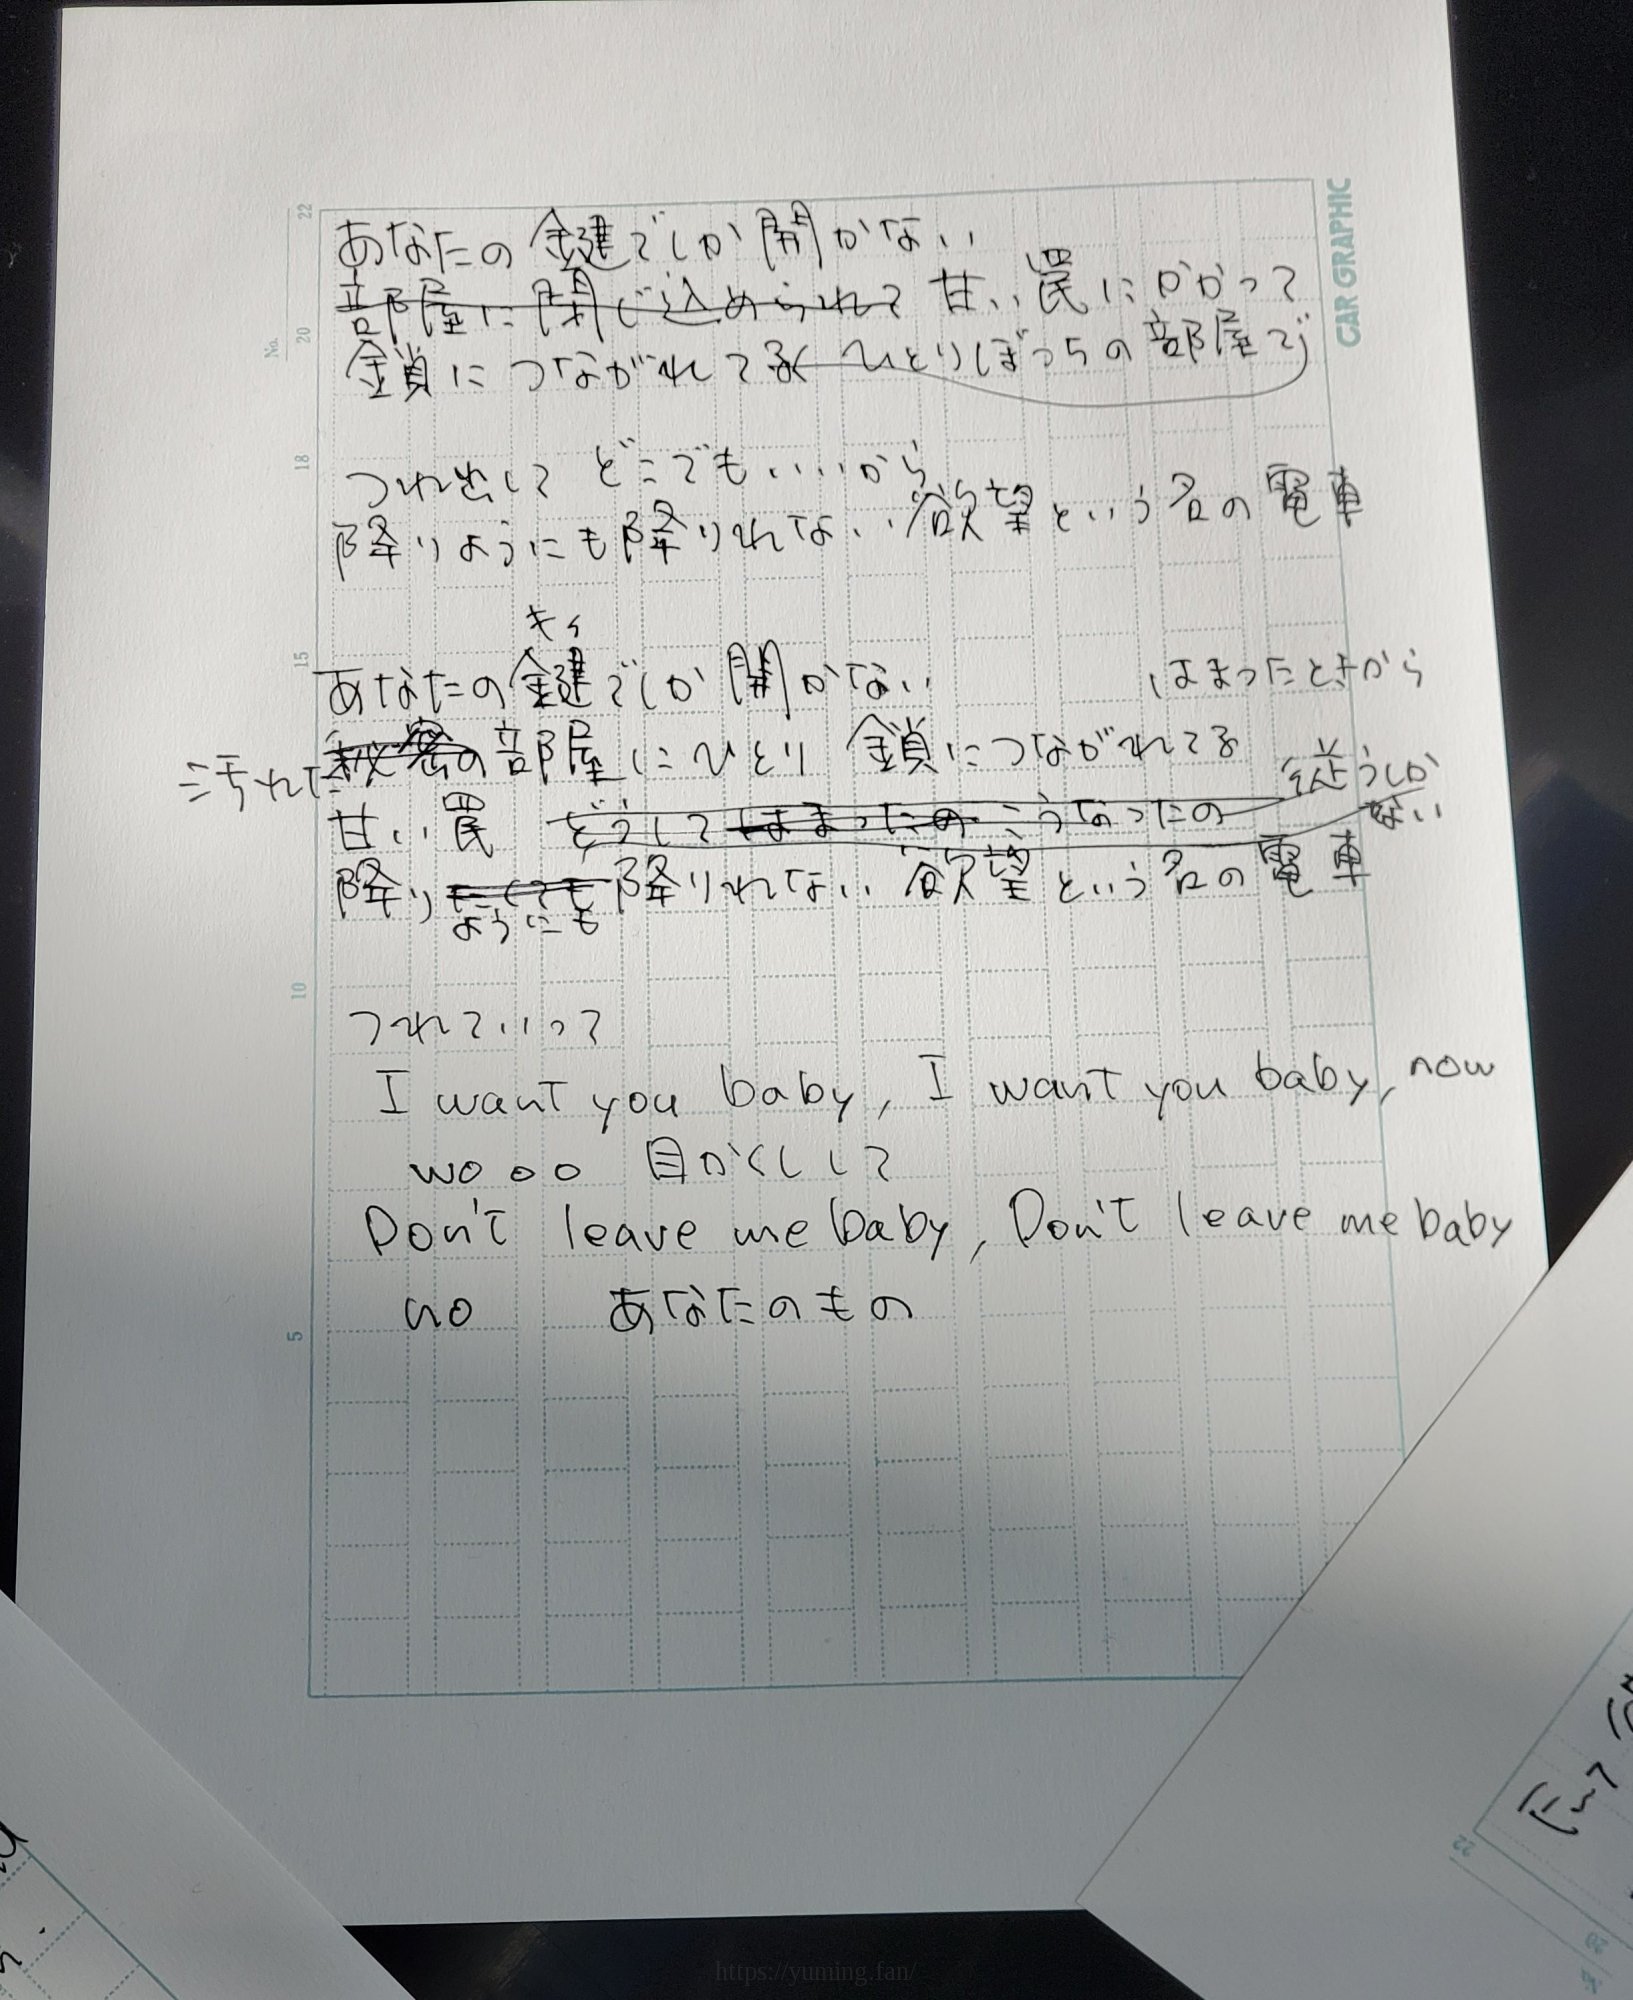 CAR GRAPHIC
No.
22
20
18
15
10
5
あなたの鍵でしか開かない
部屋に閉じ込められて 甘い罠にかかって
鎖につながれてる ひとりぼっちの部屋で
つれ出して どこでもいいから
降りようにも降りれない 欲望という名の電車
キィ
あなたの鍵でしか開かない
はまったときから
汚れた
秘密の部屋にひとり 鎖につながれてる
従うしか
ない
甘い罠 どうしてはまったの こうなったの
降りたくても降りれない 欲望という名の電車
ようにも
つれていって
I want you baby, I want you baby, now
wo o o 目かくしして
Don't leave me baby, Don't leave me baby
no あなたのもの
22
20
https://yuming.fan/